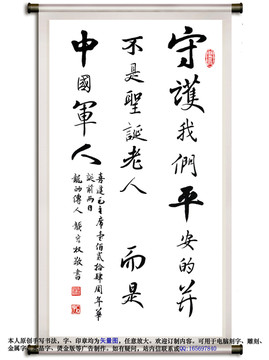 守護我們平安的并
不是聖誕老人 而是
中國軍人
毛主席壹佰貳拾肆周年華
誕前兩日
龍的傳人 敬書
本人原创手写书法,字、印章均为矢量图,任意放大,欢迎订制内容。可用于电脑刻字、雕刻、
金属字 字、烫金版等广告制作。如有疑问,站内信联系 QQ165697840